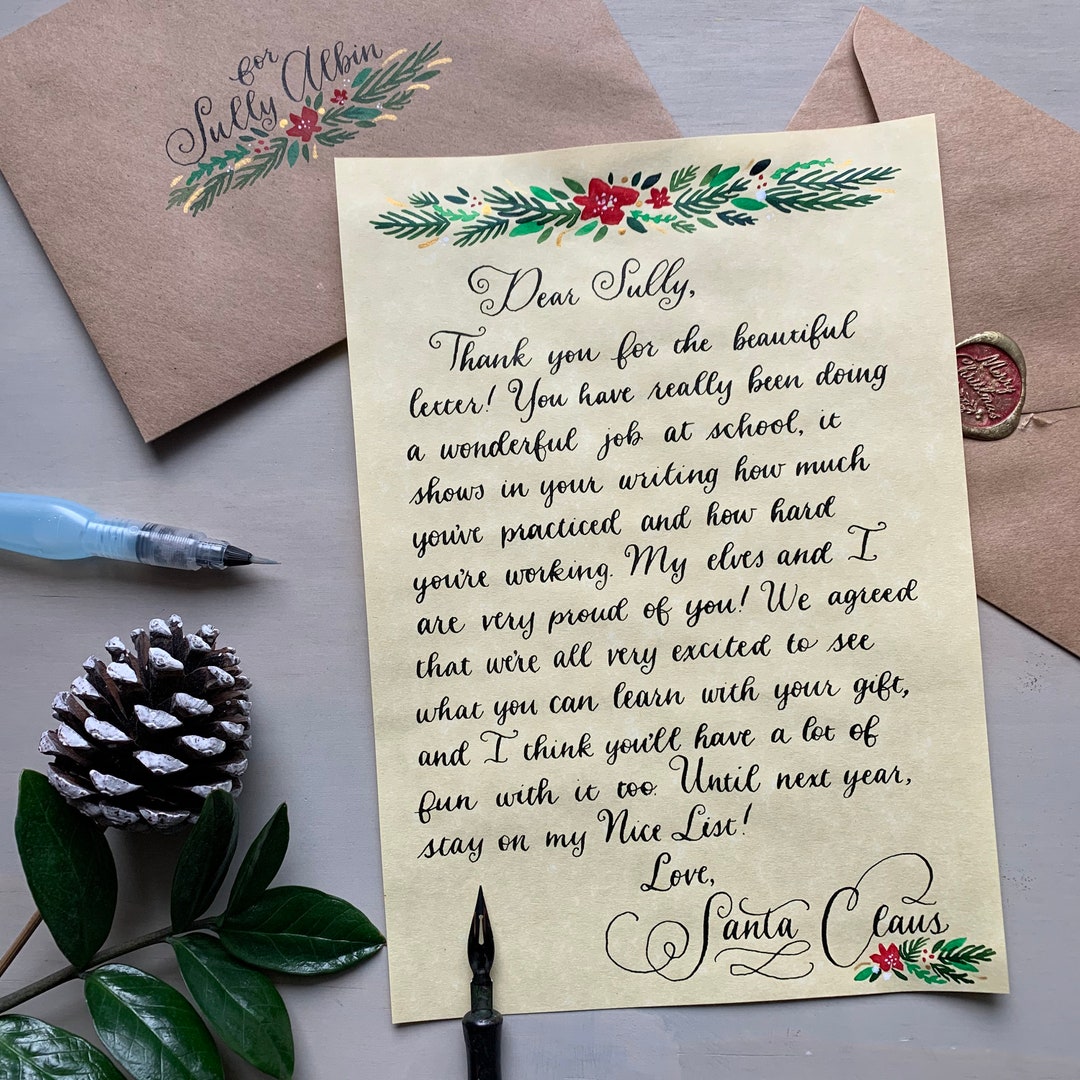 for
Sully Albin
Dear Sully,
Thank you for the beautiful
letter! You have really been doing
a wonderful job at school, it
shows in your writing how much
you've practiced and how hard
you're working. My elves and I
are very proud of you! We agreed
that we're all very excited to see
what you can learn with your gift,
and I think you'll have a lot of
fun with it too. Until next year,
stay on my Nice List!
Love,
Santa Claus
Merry
Christmas